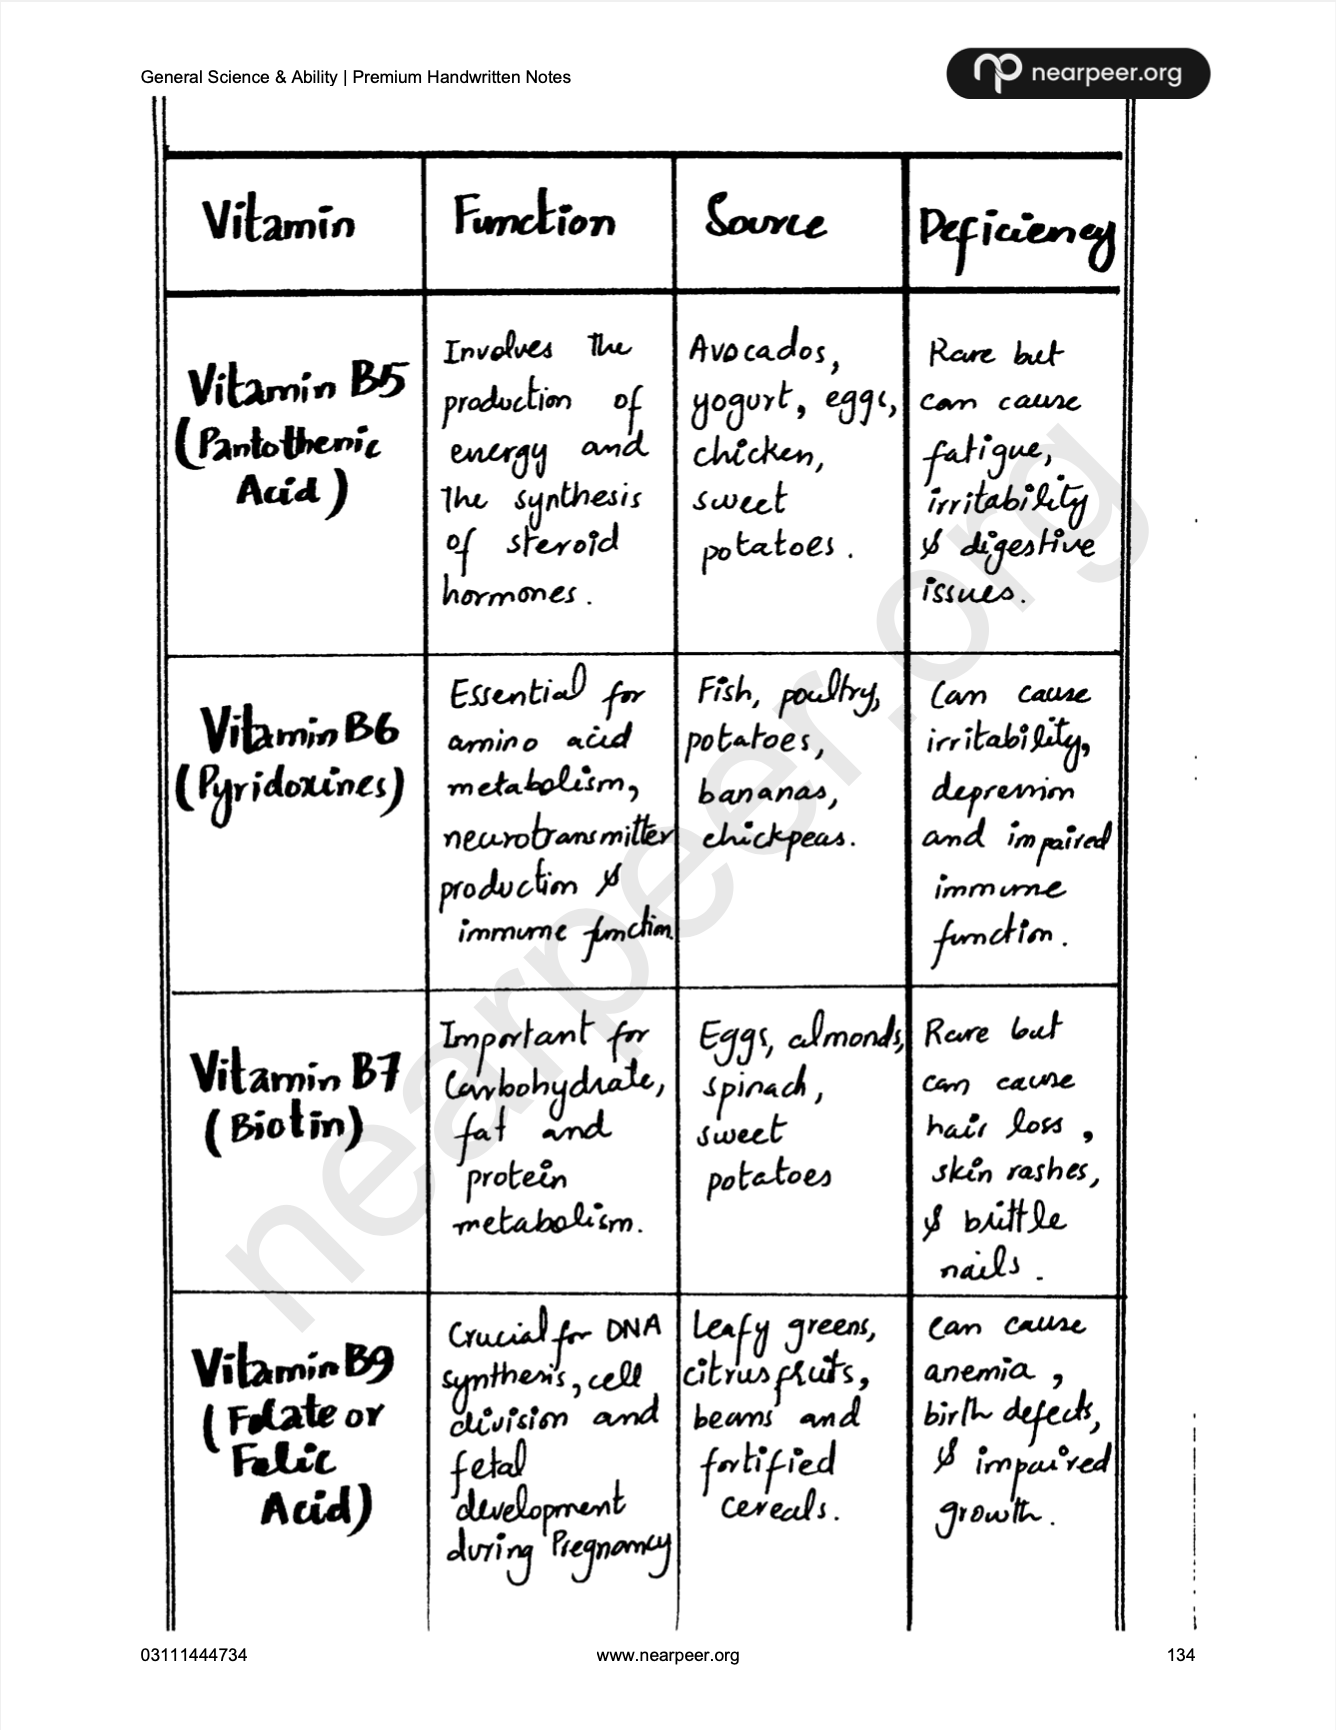 General Science & Ability | Premium Handwritten Notes
nearpeer.org
Vitamin
Function
Source
Deficiency
Vitamin B5
(Pantothenic
Acid)
Involves the
production of
energy and
the synthesis
of steroid
hormones.
Avocados,
yogurt, eggs,
chicken,
sweet
potatoes.
Rare but
can cause
fatigue,
irritability
& digestive
issues.
Vitamin B6
(Pyridoxines)
Essential for
amino acid
metabolism,
neurotransmitter
production &
immune function
Fish, poultry,
potatoes,
bananas,
chickpeas.
Can cause
irritability,
depression
and impaired
immune
function.
Vitamin B7
(Biotin)
Important for
Carbohydrate,
fat and
protein
metabolism.
Eggs, almonds,
spinach,
sweet
potatoes
Rare but
can cause
hair loss,
skin rashes,
& brittle
nails.
Vitamin B9
(Folate or
Folic
Acid)
Crucial for DNA
synthesis, cell
division and
fetal
development
during Pregnancy
Leafy greens,
citrus fruits,
beans and
fortified
cereals.
Can cause
anemia,
birth defects,
& impaired
growth.
nearpeer.org
03111444734
www.nearpeer.org
134